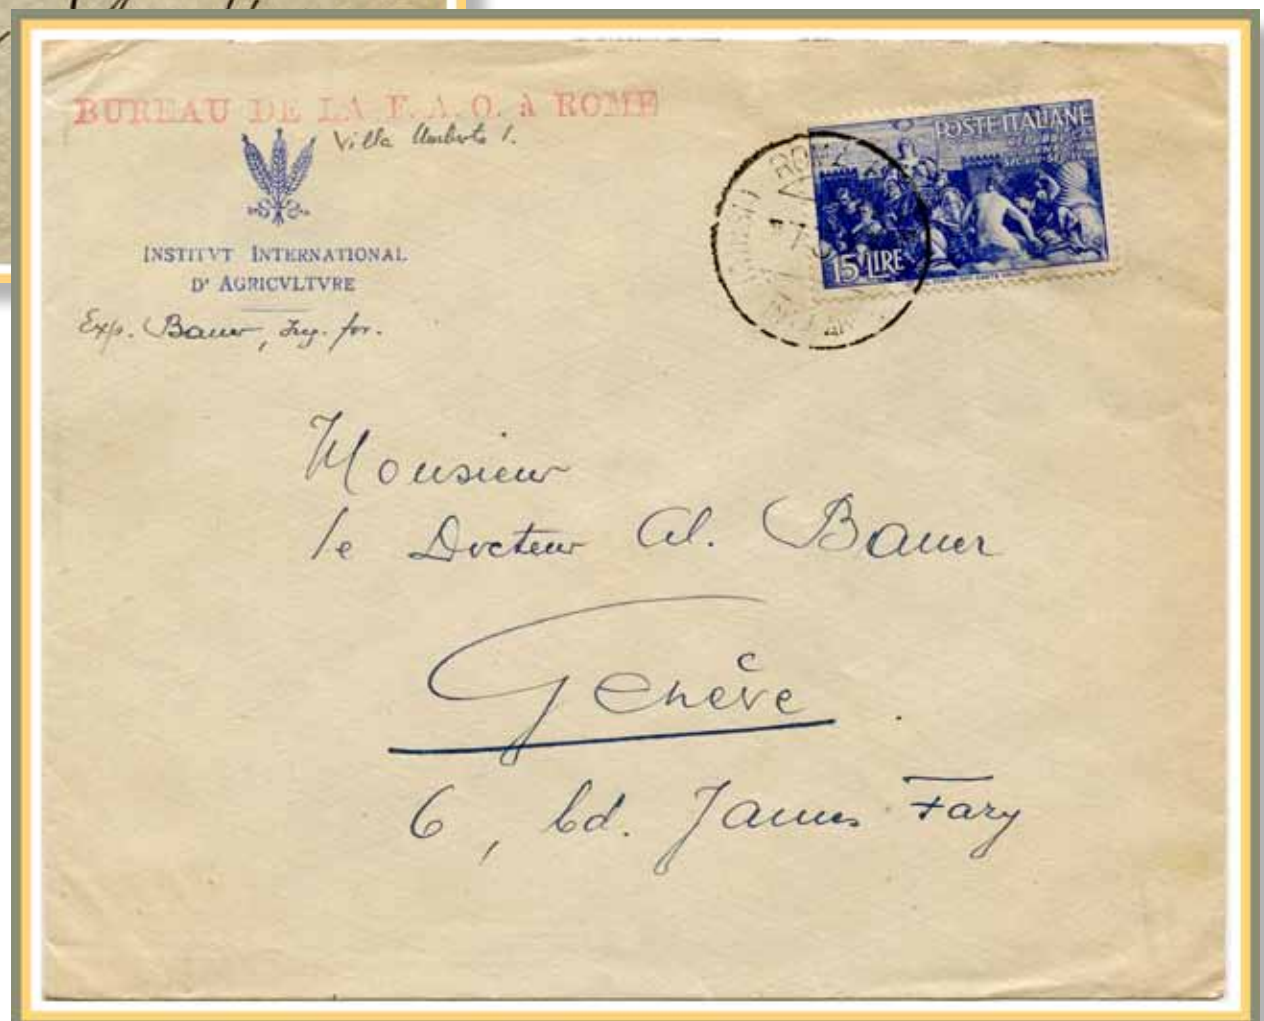 BUREAU DE LA F. A. O. à ROME
Villa Umberto I.
INSTITVT INTERNATIONAL
D' AGRICVLTVRE
Exp. Bauer, Ing. for.
POSTE ITALIANE
15 LIRE
ROMA
Monsieur
le Docteur Al. Bauer
Genève
6, bd. James Fazy